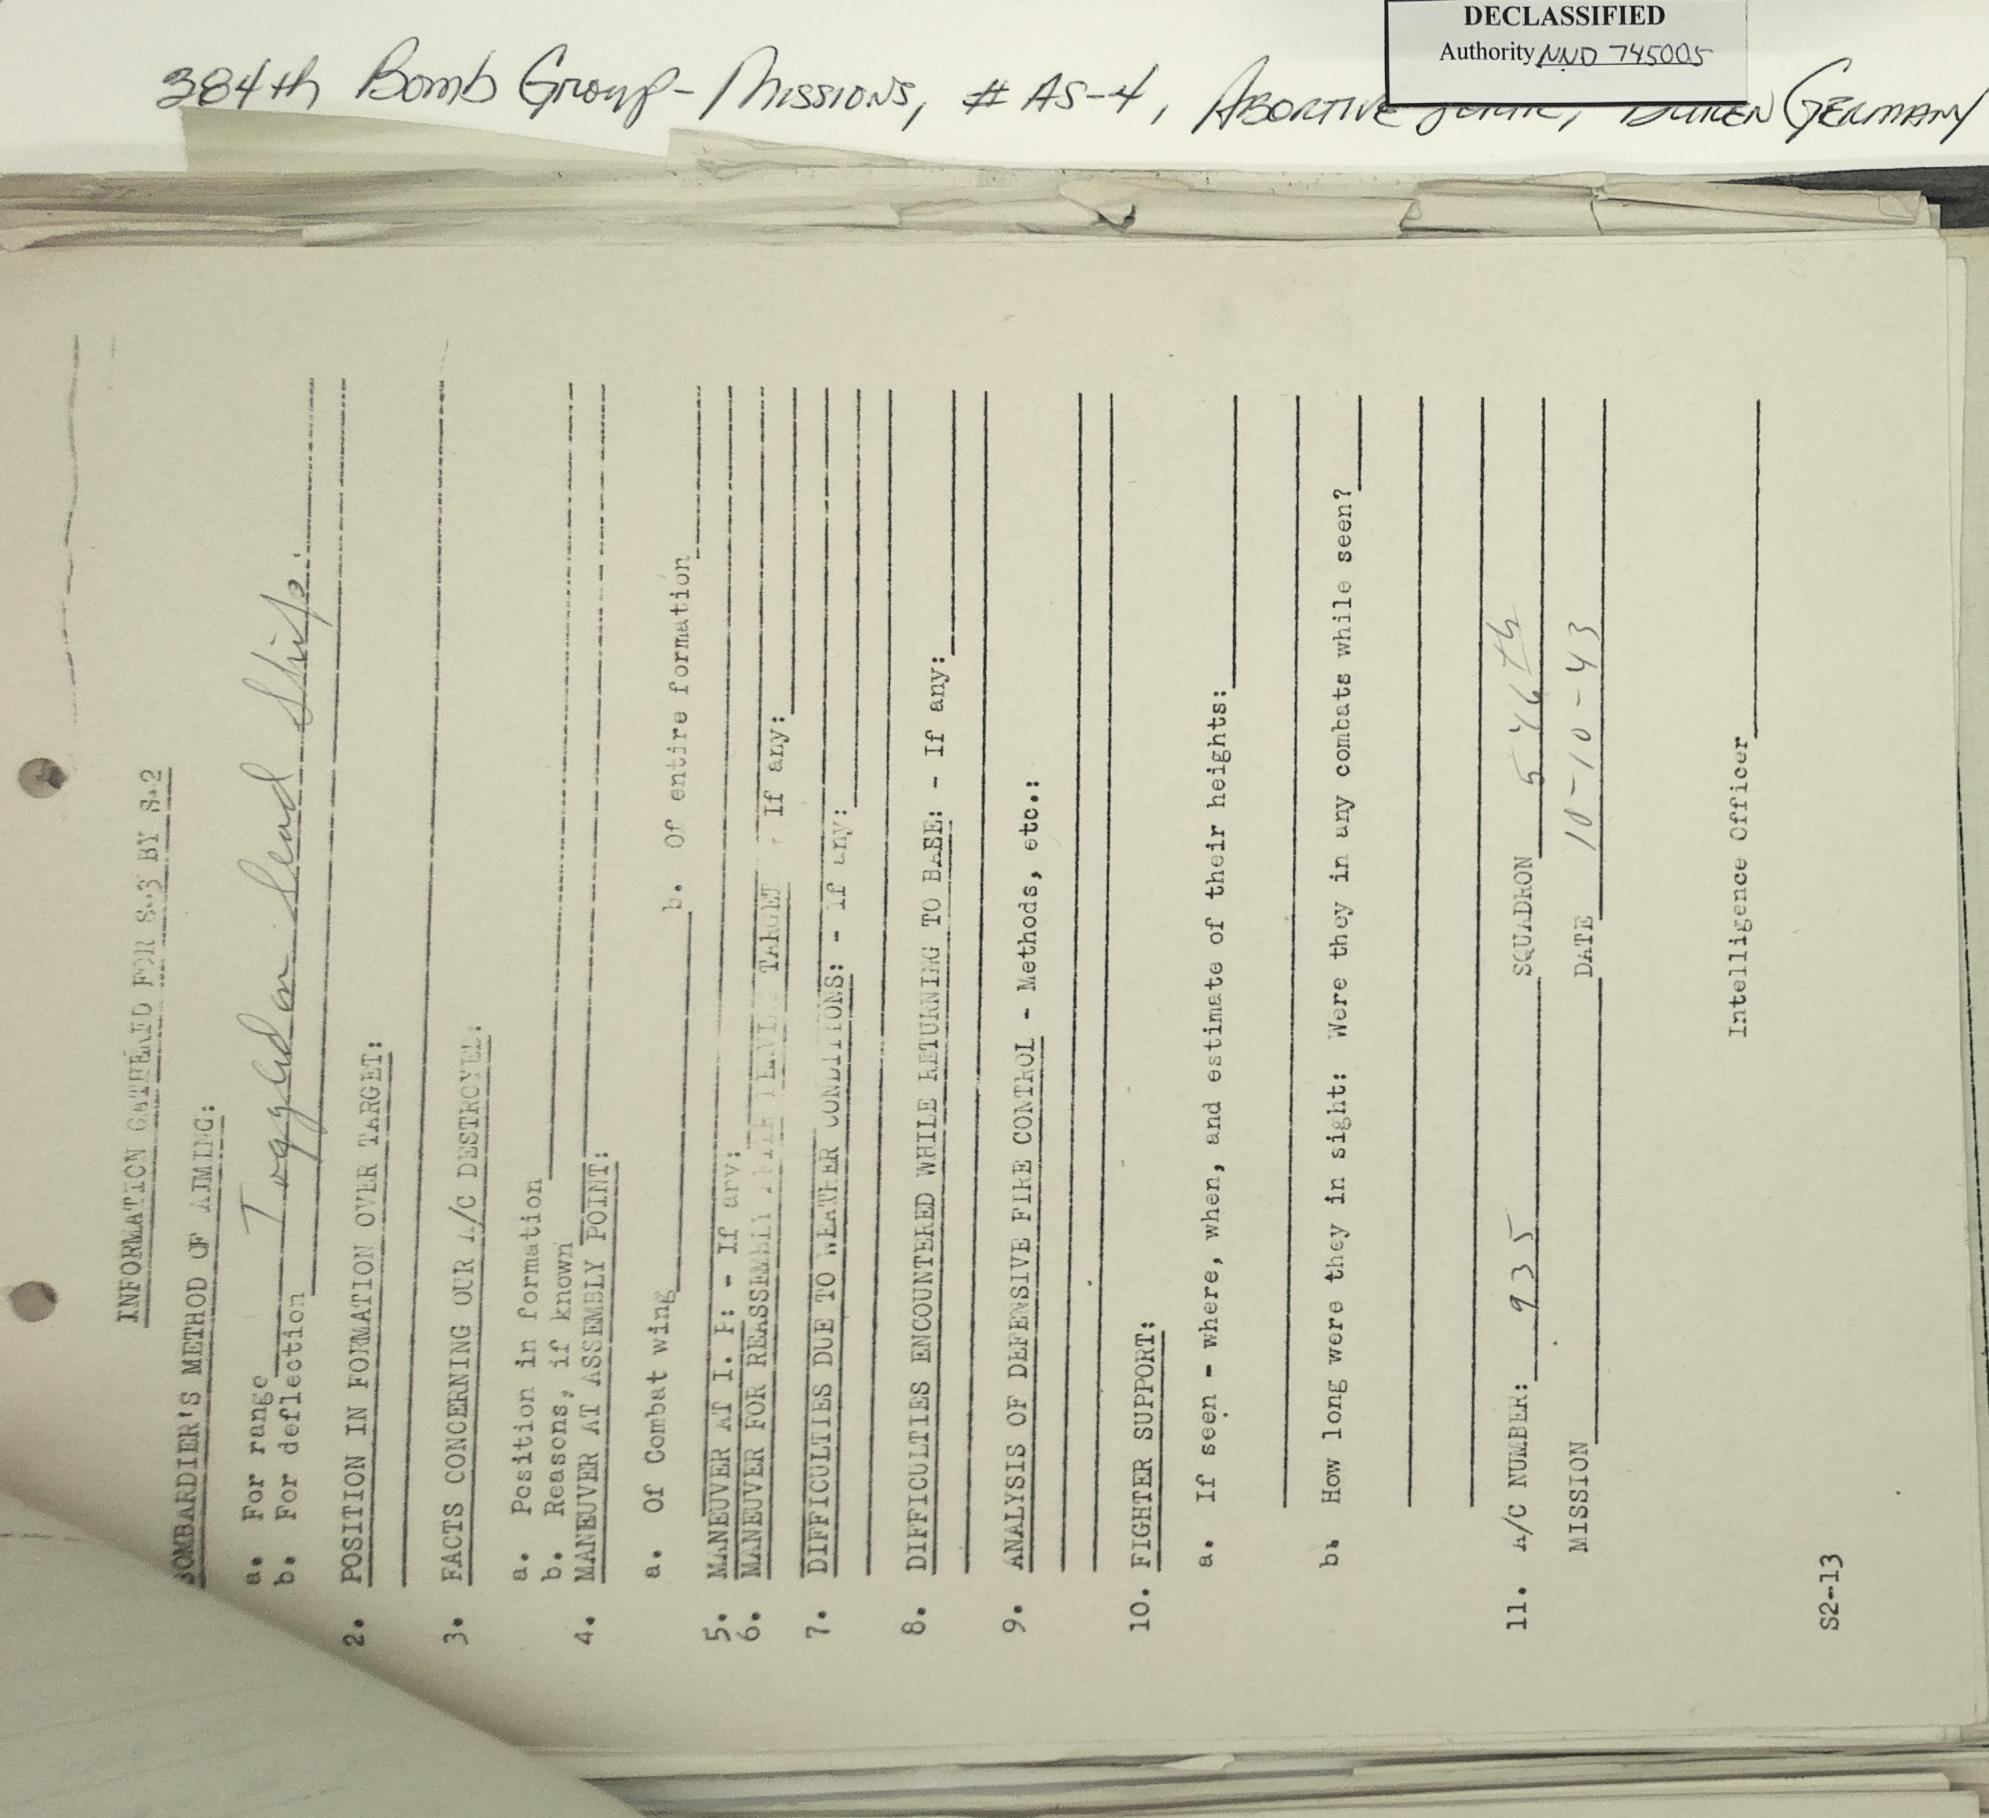 DECLASSIFIED
Authority NND 745005
384th Bomb Group - Missions, # AS-4, Abortive Germany
INFORMATION GATHERED FOR S-3 BY S-2
BOMBARDIER'S METHOD OF AIMING:
a. For range Toggled on Lead Ship.
b. For deflection
2. POSITION IN FORMATION OVER TARGET:
3. FACTS CONCERNING OUR A/C DESTROYED.
a. Position in formation
b. Reasons, if known
4. MANEUVER AT ASSEMBLY POINT:
a. Of Combat wing b. Of entire formation
5. MANEUVER AT I. P: - If any:
6. MANEUVER FOR REASSEMBLY AFTER TARGET If any:
7. DIFFICULTIES DUE TO WEATHER CONDITIONS: - If any:
8. DIFFICULTIES ENCOUNTERED WHILE RETURNING TO BASE: - If any:
9. ANALYSIS OF DEFENSIVE FIRE CONTROL - Methods, etc.:
10. FIGHTER SUPPORT:
a. If seen - where, when, and estimate of their heights:
b. How long were they in sight: Were they in any combats while seen?
11. A/C NUMBER: 935 SQUADRON 546th
MISSION DATE 10-10-43
Intelligence Officer
S2-13